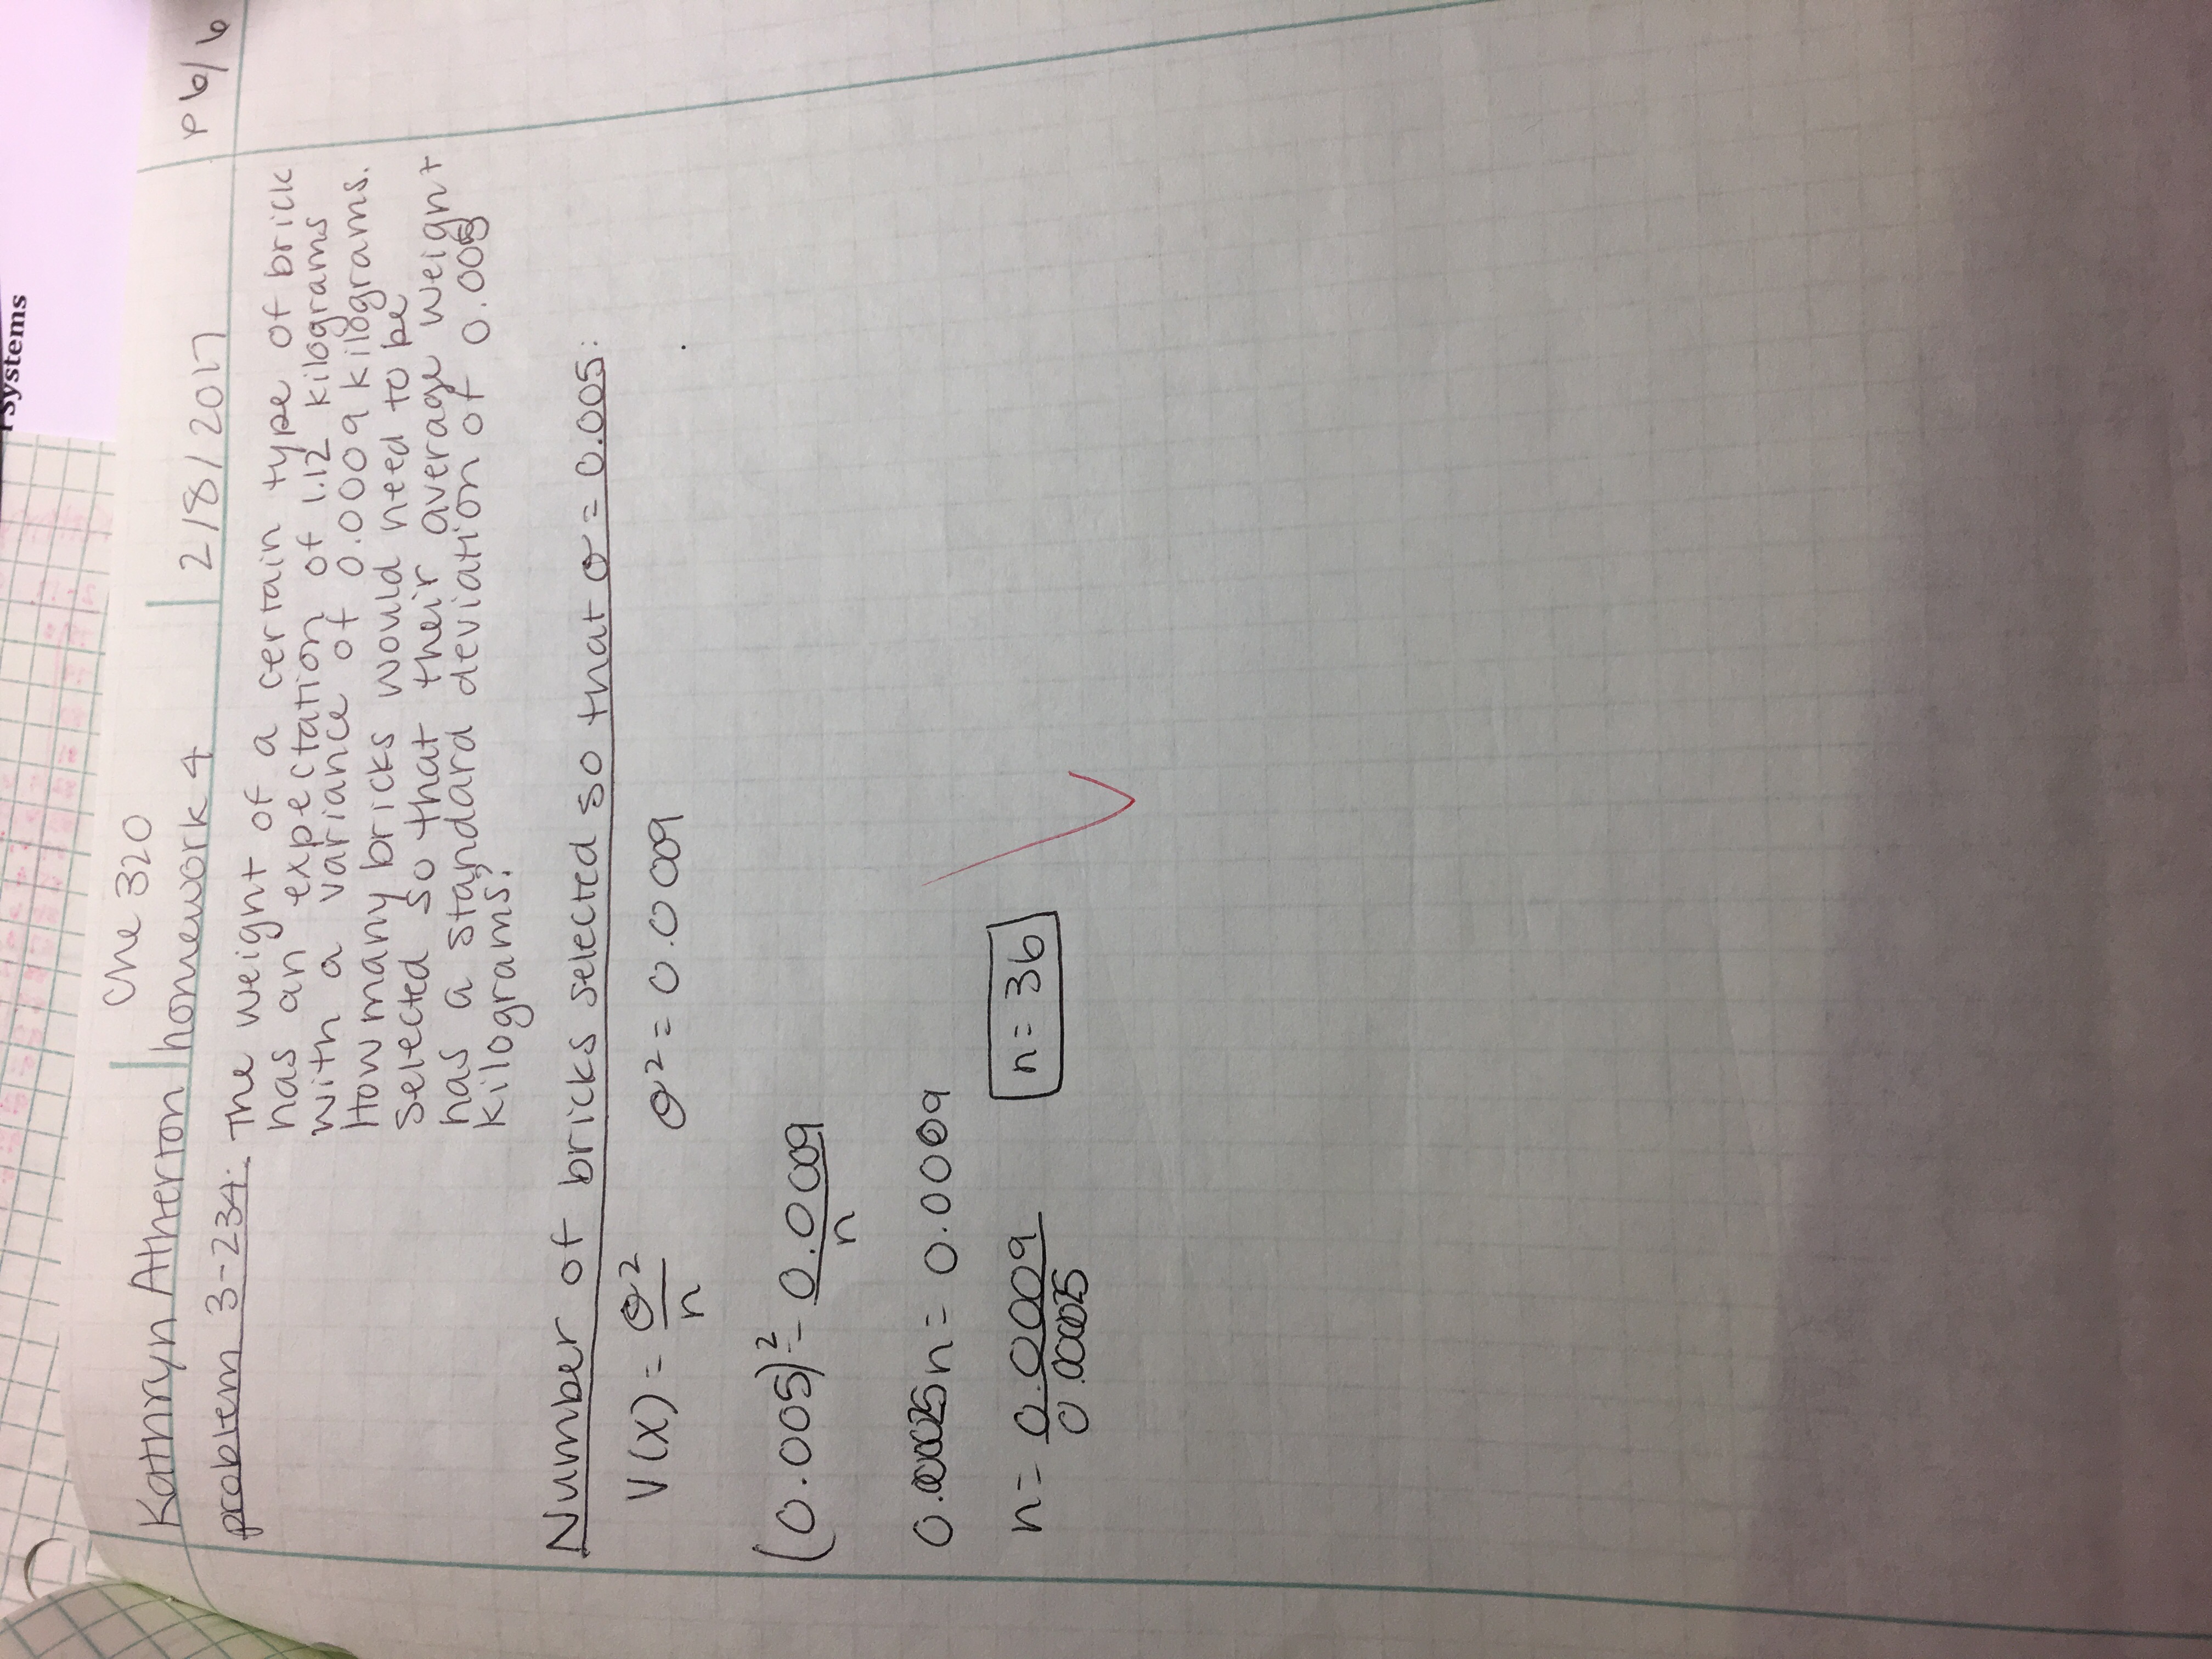 Systems
Che 320
Kathryn Atherton homework 4 2/8/2017 p 6/6
problem 3-234: The weight of a certain type of brick
has an expectation of 1.12 kilograms
with a variance of 0.0009 kilograms.
How many bricks would need to be
selected so that their average weight
has a standard deviation of 0.005
kilograms?
Number of bricks selected so that σ = 0.005:
V(X) = σ²/n σ² = 0.0009
(0.005)² = 0.0009/n
0.000025n = 0.0009
n = 0.0009/0.000025 n = 36